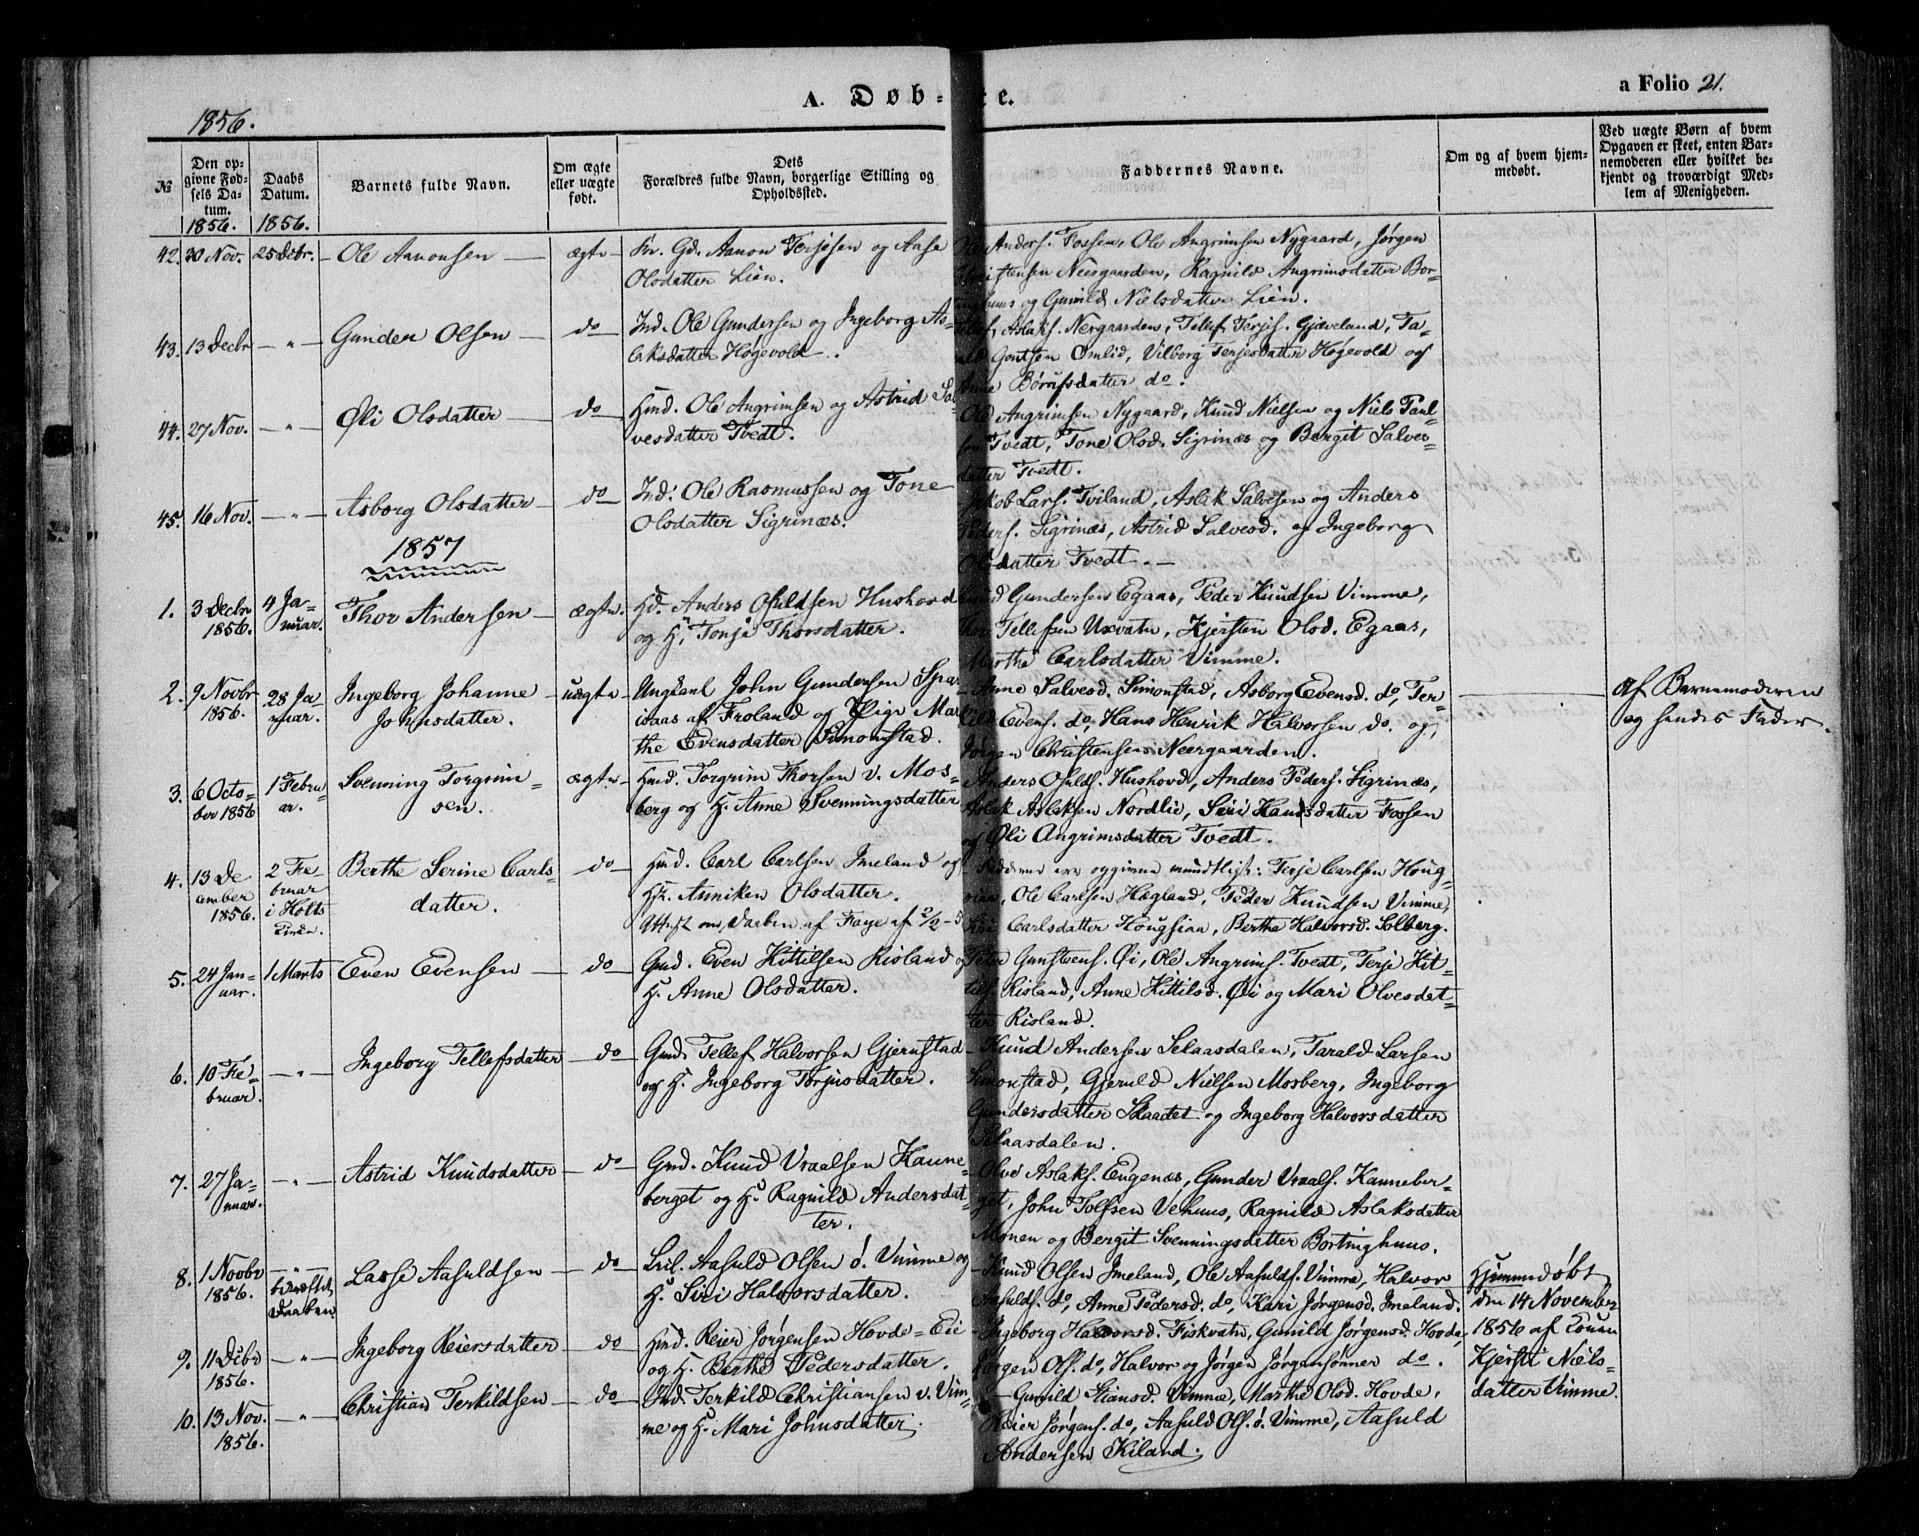 1856.
A. Døb- te.
a Folio 21.
№
Den opgivne Fødsels Datum.
1856.
Daabs Datum.
1856.
Barnets fulde Navn.
Om ægte eller uægte født.
Dets Forældres fulde Navn, borgerlige Stilling og Opholdssted.
Faddernes Navne.
Om og af hvem hjemmedøbt.
Ved uægte Børn af hvem Opgaven er skeet, enten Barnemoderen eller hvilket bekjendt og troværdigt Medlem af Menigheden.
42. 30 Nov. 25 Decbr. Ole Aanonsen ægte
Gd. Aanon Terjesen og Aase
Olsdatter Lien.
Anders. Fossen, Ole Angrimsen Nygaard, Jørgen
Christensen Neergaarden, Ragnild Angrimsdatter Bor-
tinghuus og Gunild Nielsdatter Lien.
43. 13 Decbr — " — Gunder Olsen do
Ind. Ole Gundersen og Ingeborg As-
laksdatter Høgevold.
Tellef Aslaks. Nergaarden, Tellef Terjes. Gjæveland, Ta-
rald Omlid, Vilborg Terjesdatter Høgevold og
Anne datter do.
44. 27 Nov. — " — Øli Olsdatter do
Hmd. Ole Angrimsen og Astrid Sal-
vesdatter Tvedt.
Ole Angrimsen Nygaard, Knud Nielsen og Niels Paul-
sen Tvedt, Tone Olsd. Sigrinæs og Bergit Salves-
datter Tvedt.
45. 16 Nov. — " — Asborg Olsdatter do
Ind. Ole Rasmussen og Tone
Olsdatter Sigrinæs.
Jakob Lars. Tviland, Aslak Salvesen og Anders
Peders. Sigrinæs, Astrid Salvesd. og Ingeborg
Olsdatter Tvedt.
1857
1. 3 Decbr 1856. 4 Januar. Thor Andersen ægte
Gd. Anders Osuldsen Hushovd
og H. Tonje Thorsdatter.
Knud Gundersen Egaas, Peder Knudsen Vimme,
Thor Tellefsen Uxvatn, Kjersten Olsd. Egaas,
Marthe Carlsdatter Vimme.
2. 9 Novbr 1856. 28 Januar. Ingeborg Johanne
Johnsdatter. uægte
Ungkarl John Gundersen
af Froland og Pige Mar-
the Evensdatter Simonstad.
Anne Salvesd. Simonstad, Asborg Evensd. do, Ter-
kild Evens. do, Hans Henrik Halvorsen do. og
Jørgen Christensen Neergaarden.
af Barnemoderen
og hendes Fader.
3. 6 October 1856 1 Februar. Svenning Torgrim-
sen. ægte
Hmd. Torgrim Thorsen v. Mos-
berg og H. Anne Svenningsdatter
Anders Osulds. Hushovd, Anders Peders. Sigrinæs,
Aslak Aslaksen Nordlie, Siri datter Fossen
og Øli Angrimsdatter Tvedt.
4. 13 December 1856. 2 Februar i Holts Kirke. Berthe Serine Carls-
datter. do
Hmd. Carl Carlsen Imeland og
Hr. Anniken Olsdatter.
Attest om Daaben af Faye af 2/2 – 5
Fadderne ere opgivne mundtligt: Terje Carlsen Houg-
siaa, Ole Carlsen Hægland, Peder Knudsen Vimme,
Siri Carlsdatter Hougsiaa, Berthe Halvorsd. Solberg.
5. 24 Januar. 1 Marts Even Evensen do
Gmd. Even Kittilsen Risland og
H. Anne Olsdatter.
Gunstens. Øi, Ole Angrims. Tvedt, Terje Kit-
tils. Risland, Anne Kittilsd. Øi og Mari Olvesdat-
ter Risland.
6. 10 Februar. — " — Ingeborg Tellefsdatter do
Gmd. Tellef Halvorsen Gjernstad
og H. Ingeborg Torjusdatter.
Knud Andersen Selaasdalen, Tarald Larsen
Simonstad, Gjeruld Nielsen Mosberg, Ingeborg
Gundersdatter Skaadet og Ingeborg Halvorsdatter
Selaasdalen.
7. 27 Januar. — " — Astrid Knudsdatter do
Gmd. Knud Vraalsen Kanne-
berget og H. Ragnild Andersdat-
ter.
Olve Aslaks. Eugenæs, Gunder Vraals. Kanneber-
get, John Tolfsen Vehuus, Ragnild Aslaksdatter
Monen og Bergit Svenningsdatter Bortinghuus.
8. 1 Novbr 1856. — " — bekræftet Daaben Lasse Aasuldsen do
Aasuld Olsen ø. Vimme og
H. Siri Halvorsdatter.
Knud Olsen Imeland, Ole Aasulds. Vimme, Halvor
Aasulds. do, Anne Pedersd. do, Kari Jørgensd. Imeland.
Hjemmedøbt
den 14 November
1856 af Konen
Kjersti Niels-
datter Vimme.
9. 11 Dcbr 1856. — " — Ingeborg Reiersdatter do
Hmd. Reier Jørgensen Hovde-Eie
og H. Berthe Pedersdatter.
Ingeborg Halvorsd. Fiskvatn, Gunild Jørgensd. Hovde,
Jørgen Ols. do, Halvor og Jørgen Jørgensønner do.
10. 13 Nov. 1856. — " — Christian Terkildsen do
Ind. Terkild Christiansen v. Vim-
me og H. Mari Johnsdatter.
Gunild Stiansd. Vimme, Marthe Olsd. Hovde,
Reier Jørgens. do, Aasuld Ols. ø. Vimme, Aasuld
Andersen Kiland.